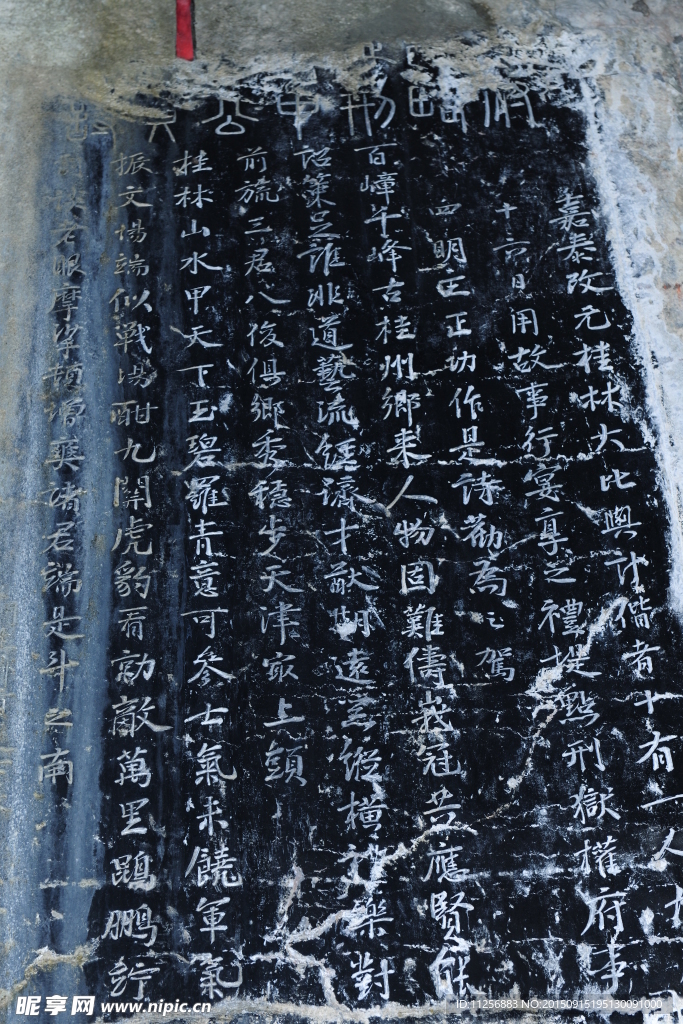 嘉泰改元桂林大比與計偕者十有一人
用故事行宴享之禮提點刑獄權府事
四明王正功作是詩勸為之駕
百嶂千峰古桂州鄉来人物固難儔峩冠共應賢能
詔策足誰非道藝流經濟才猷期遠器縱橫禮樂對
前旒三君八俊俱鄉秀穩步天津最上頭
桂林山水甲天下玉碧羅青意可參士氣未饒軍氣
振文場端似戰場酣九關虎豹看勍敵萬里鵾鵬竚
老眼摩挲頓增爽諸君端是斗之南
昵享网 www.nipic.cn
ID:11256883 NO:20150915195130091000